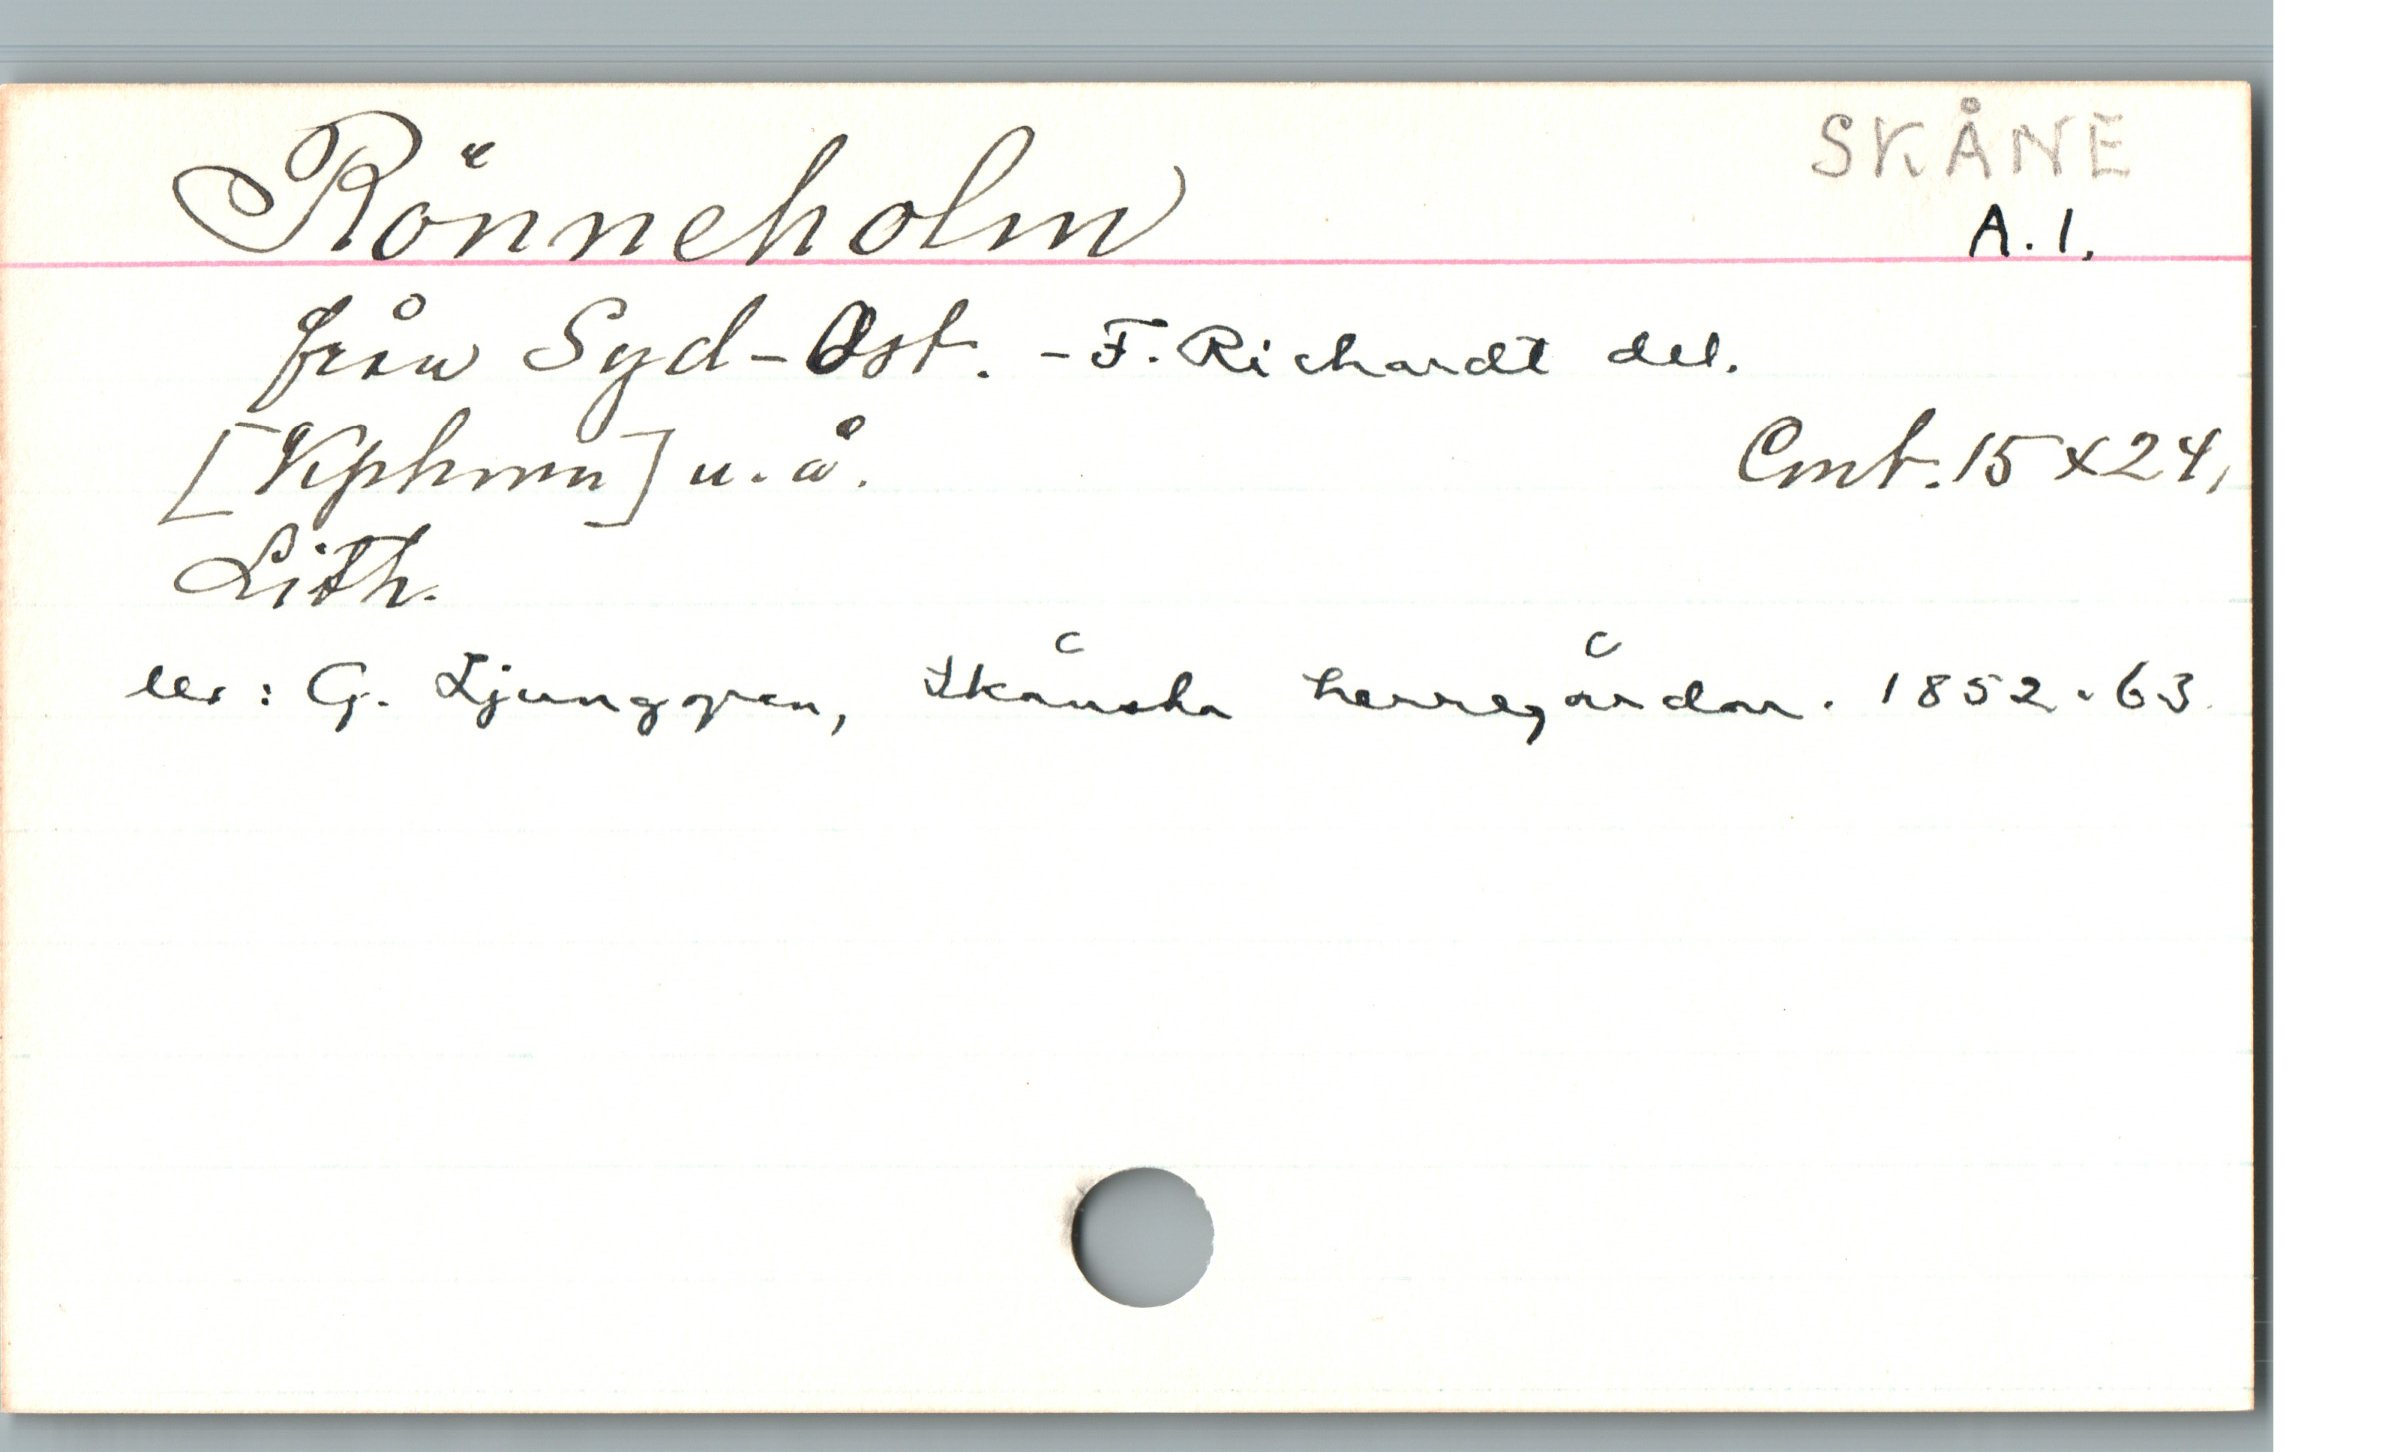 SKÅNE
Rönneholm
A.1.
från Syd-Ost. - F. Richardt del.
[Kphmn] u. å. Cmt. 15 x 24,
Lith.
Ur: G. Ljunggren, Skånska herregårdar. 1852-63.